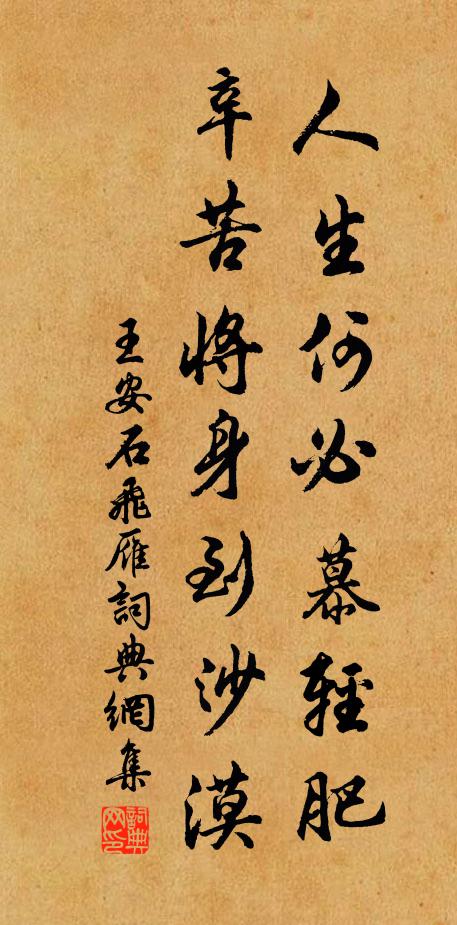 人生何必慕輕肥
辛苦將身到沙漠
王安石飛雁詞典網集
詞典
网印